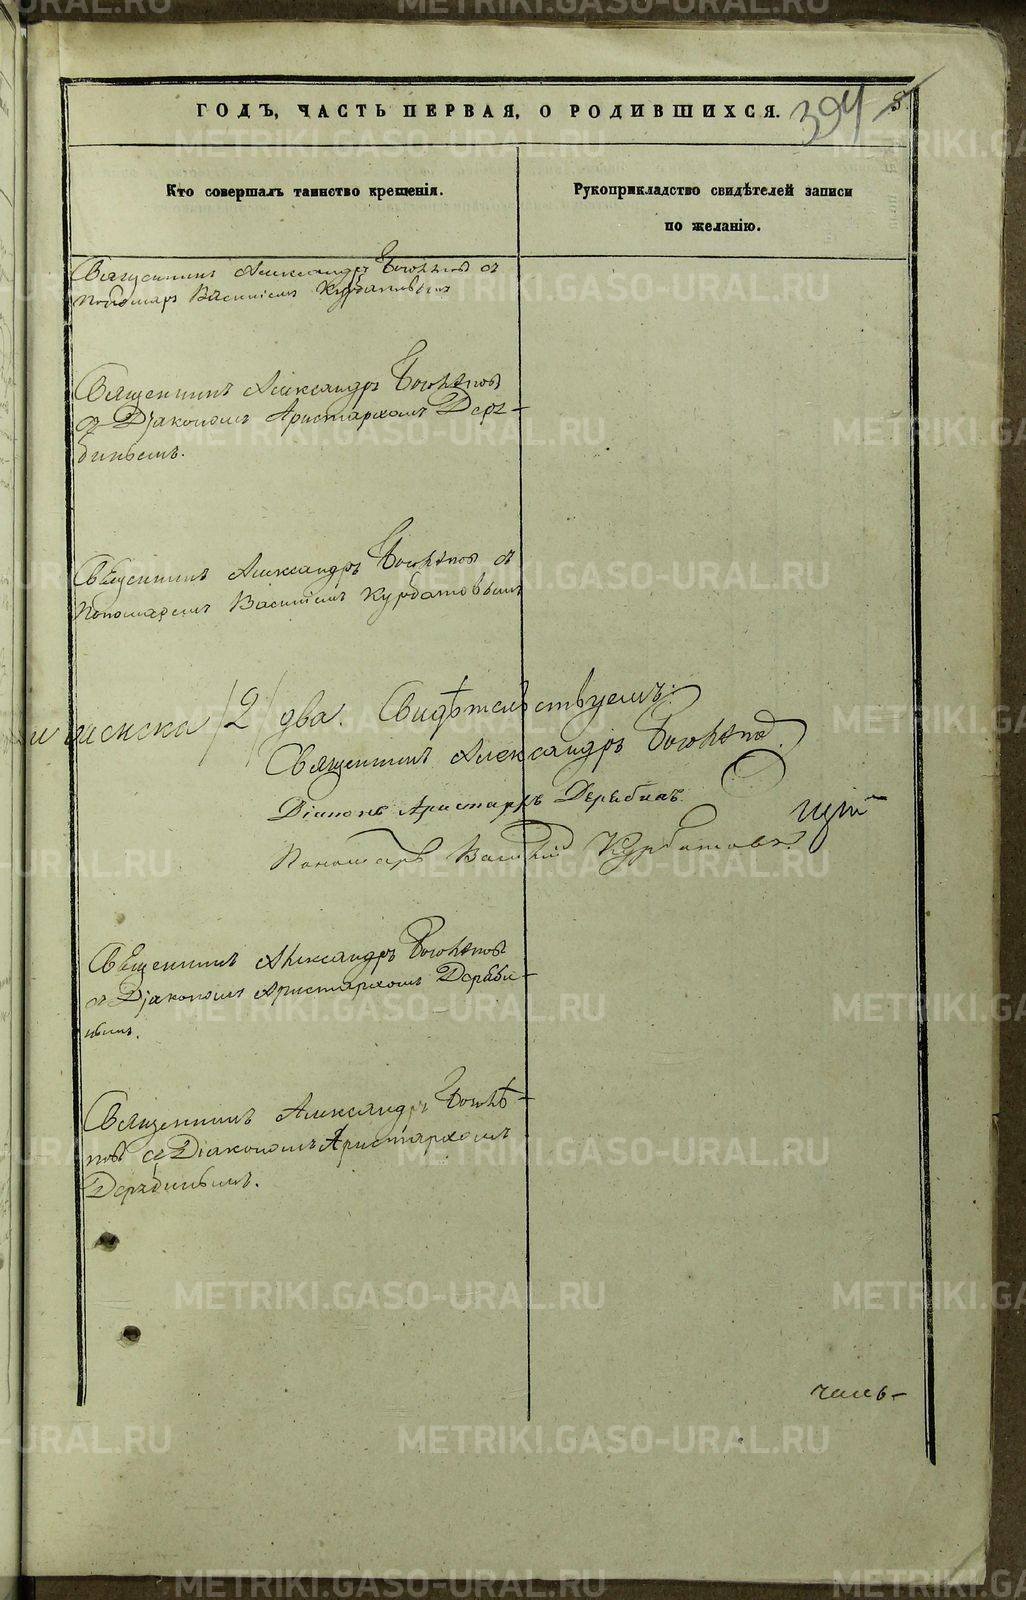 ГОДЪ, ЧАСТЬ ПЕРВАЯ, О РОДИВШИХСЯ.
394
5.
Кто совершалъ таинство крещенія.
Рукоприкладство свидѣтелей записи
по желанію.
Священникъ Александръ Боголѣповъ съ
Пономаремъ Василіемъ Курбатовымъ
Священникъ Александръ Боголѣповъ
съ Діакономъ Аристархомъ Деря-
бинымъ.
Священникъ Александръ Боголѣповъ съ
Пономаремъ Василіемъ Курбатовымъ
женска /2/ два. Свидѣтельствуемъ:
Священникъ Александръ Боголѣповъ.
Діаконъ Аристархъ Дерябинъ.
Пономарь Василій Курбатовъ.
щій
Священникъ Александръ Боголѣповъ
съ Діакономъ Аристархомъ Деряби-
нымъ.
Священникъ Александръ Боголѣ-
повъ съ Діакономъ Аристархомъ
Дерябинымъ.
METRIKI.GASO-URAL.RU